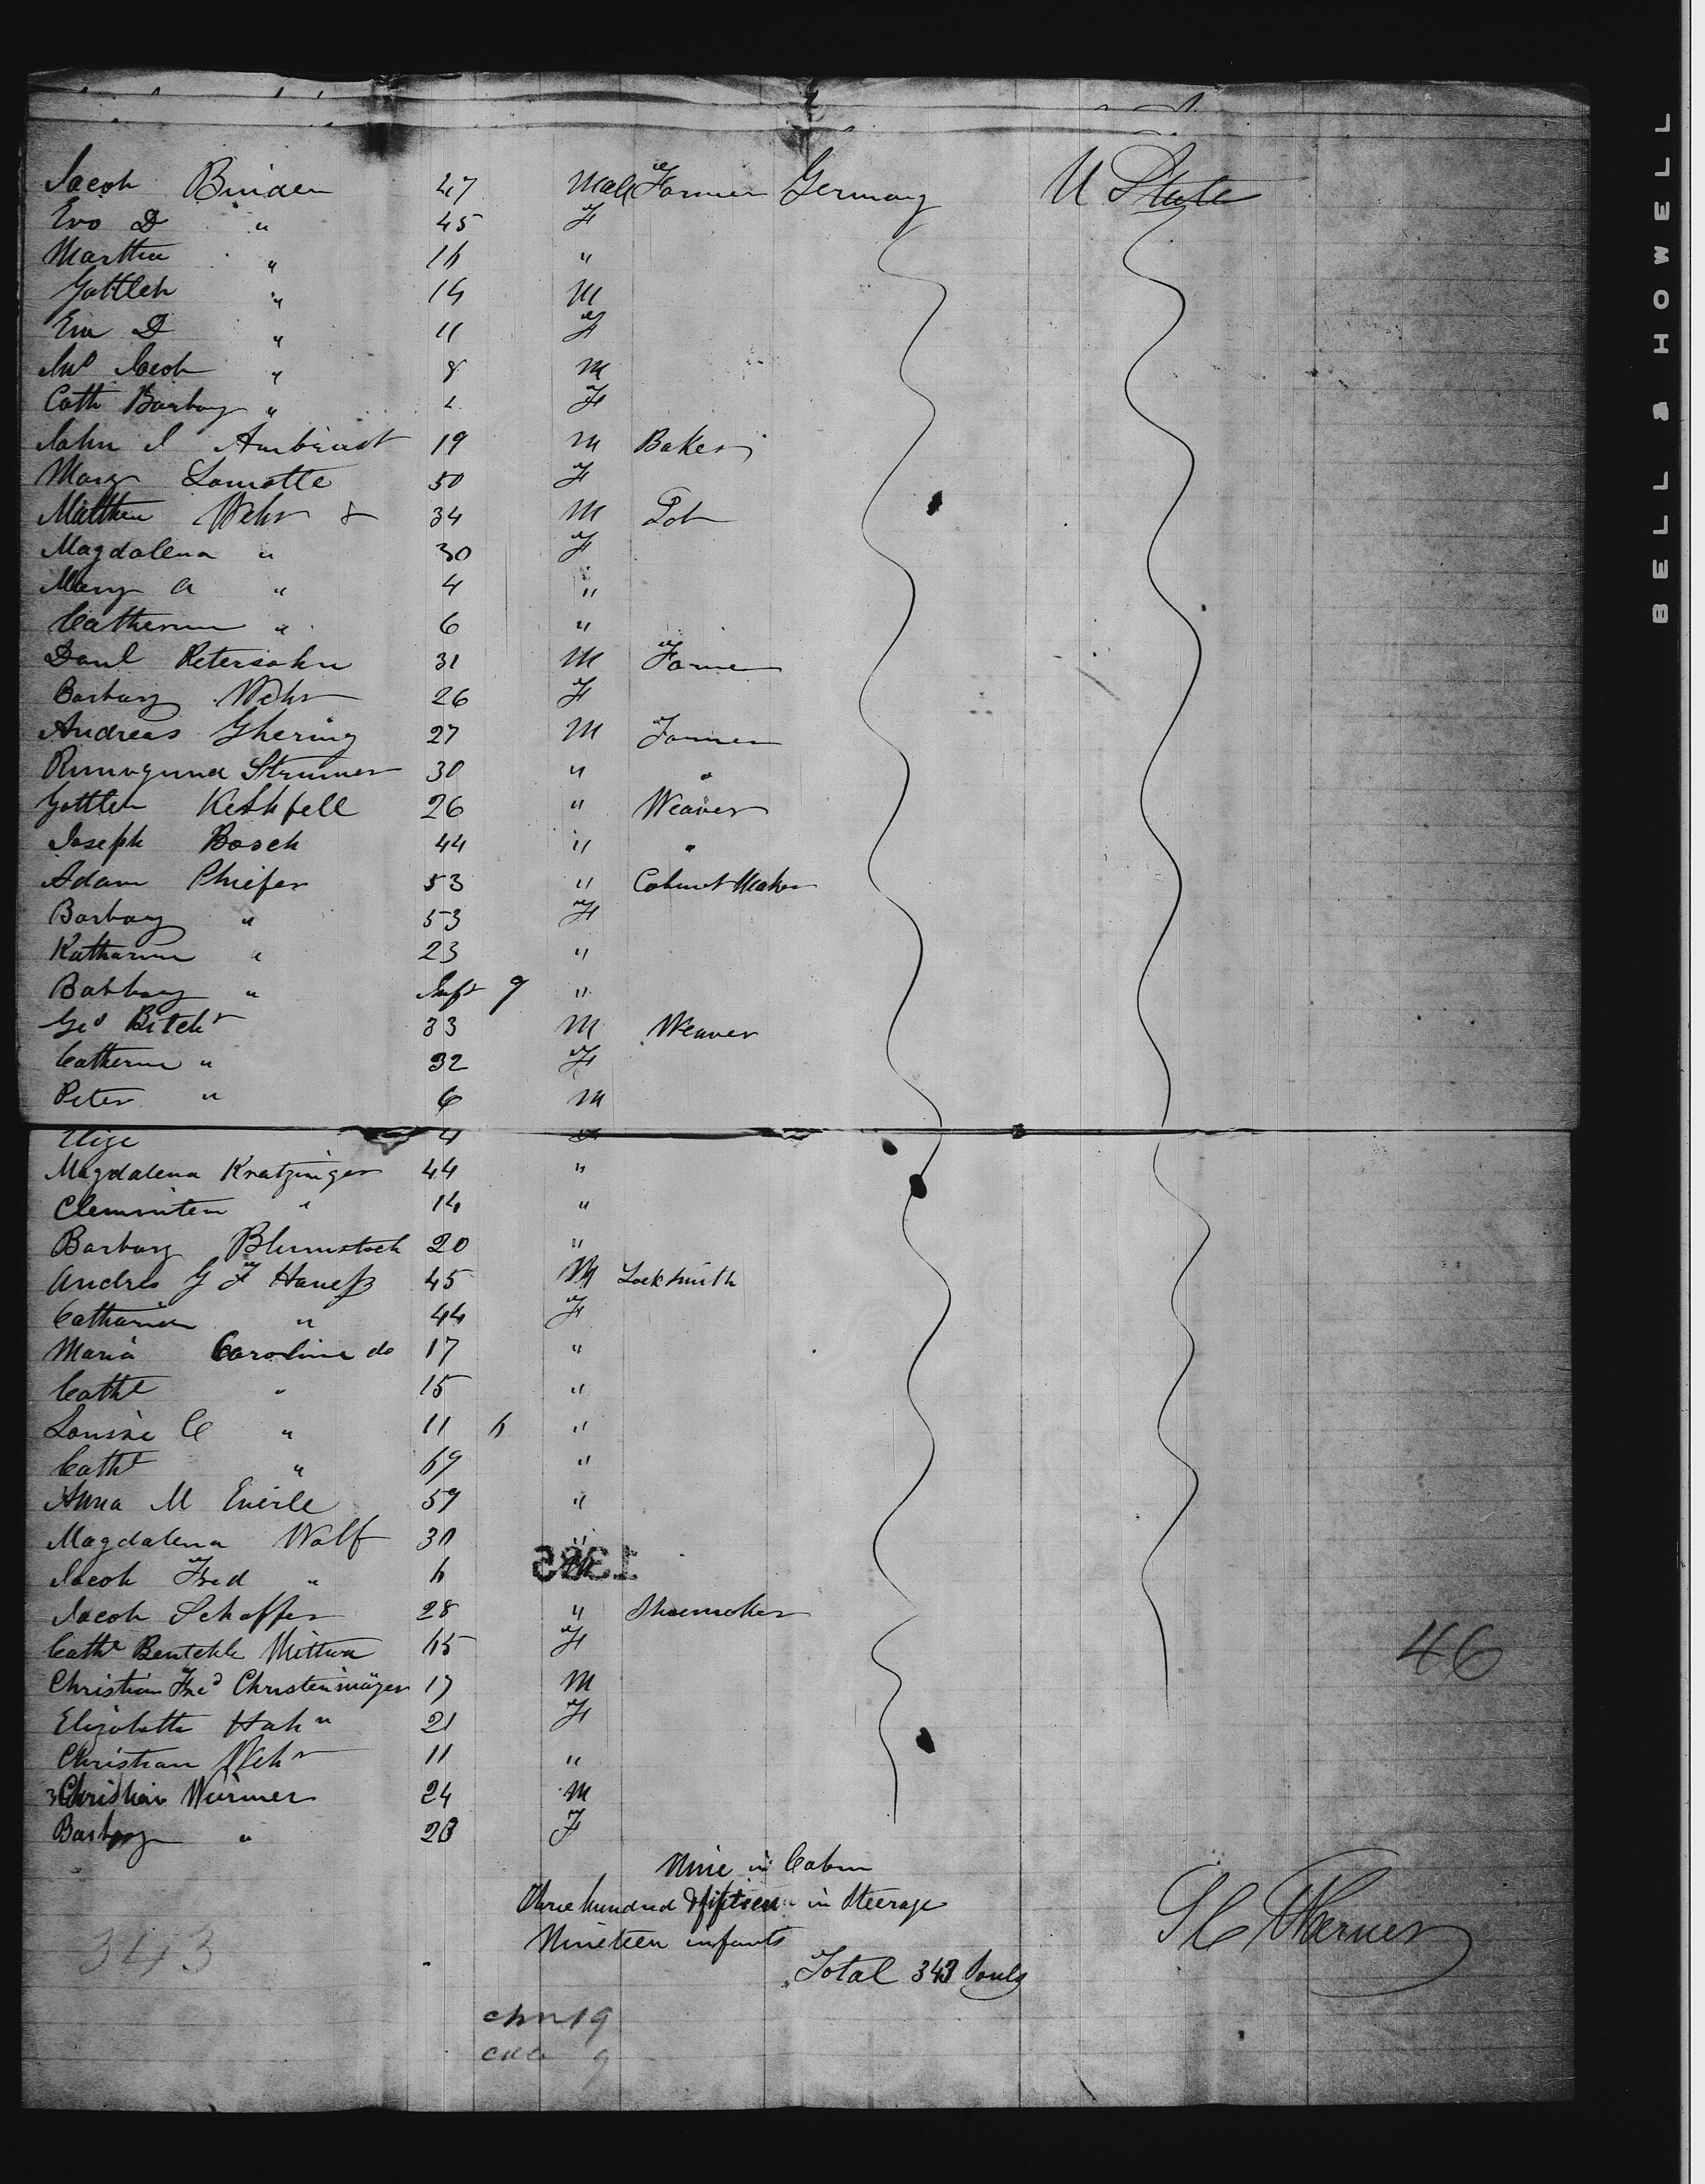 Jacob Binder 47 Male Farmer Germany U State
Eva D " 45 F
Martha " 16 "
Gottleb " 14 M
Eva D " 11 F
Jno Jacob " 8 M
Cath Barbary " F
John J Armbrust 19 M Baker
Mary Lamotte 50 F
Matthew Wehr & 34 M
Magdalena " 30 F
Mary A " 4 "
Catherine " 6 "
Danl Petersohn 31 M Farmer
Barbary Wehr 26 F
Andreas Ghering 27 M Farmer
Strumer 30 " "
Gottleb Kethfell 26 " Weaver
Joseph Bosch 44 " "
Adam Phiefer 53 " Cabinet Maker
Barbary " 53 F
Katharine " 23 "
Barbary " Inft 9 "
Geo Bitchr 33 M Weaver
Catherine " 32 F
Peter " 6 M
Elize 4
Magdalena Kratzinger 44 "
Clementen " 14 "
Barbary Blumstock 20 "
Andres G F Haneß 45 M Locksmith
Catharine " 44 F
Maria Caroline do 17 "
Cathe " 15 "
Louise C " 11 6 "
Cathe " 69 "
Anna M Eneile 59 "
Magdalena Wolf 30 "
Jacob Fred " 6 M
1385
Jacob Schaffer 28 " Shoemaker
Cathe 65 F
Christian Fred Christenmäyer 17 M
Elizabetha Hahn 21 F
Christian Wehr 11 "
Christian Würmer 24 M
Barbary " 23 F
46
Nine in Cabin
Three hundred & fifteen in Steerage
Nineteen infants
343
Total 343 Souls
chn 19
9
BELL & HOWELL